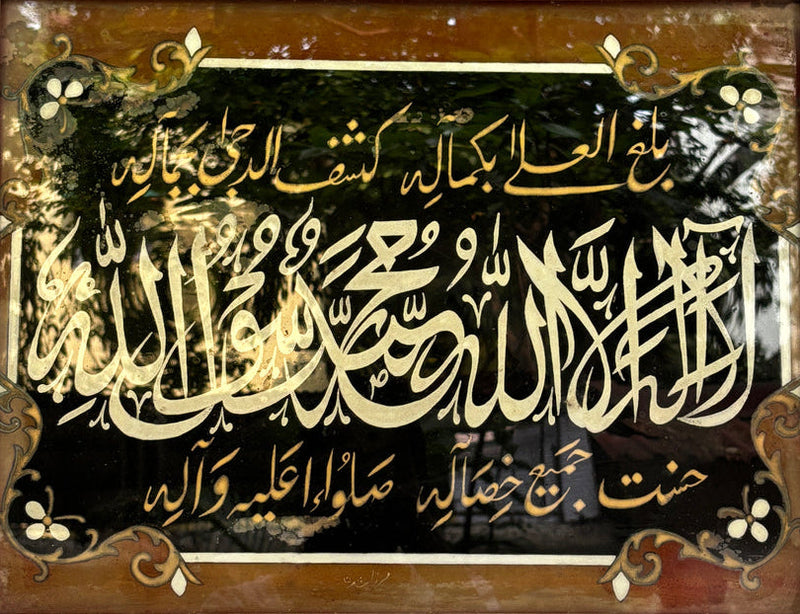 بلغ العلےٰ بکمالٓہٖ کشف الدجیٰ بجمالٓہٖ
لَآ اِلٰہَ اِلَّا اللّٰہُ مُحَمَّدٌ رَّسُوْلُ اللّٰہِ
حسنت جَمِیْعُ خِصَالٓہٖ صَلُّوْا عَلَیْہِ وَآلِہٖ